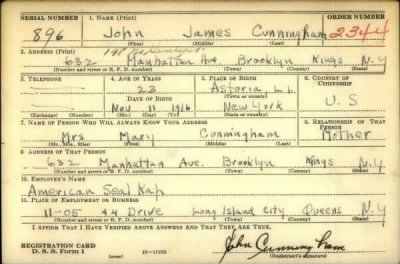 SERIAL NUMBER 1. NAME (Print) ORDER NUMBER
896 John James Cunningham 2344
(First) (Middle) (Last)
2. ADDRESS (Print)
632 Manhattan Ave. Brooklyn Kings N.Y
(Number and street or R. F. D. number) (Town) (County) (State)
3. TELEPHONE 4. AGE IN YEARS 5. PLACE OF BIRTH 6. COUNTRY OF CITIZENSHIP
23 Astoria L.I.
DATE OF BIRTH (Town or county)
Nov 11 1916 New York U.S
(Exchange) (Number) (Mo.) (Day) (Yr.) (State or country)
7. NAME OF PERSON WHO WILL ALWAYS KNOW YOUR ADDRESS 8. RELATIONSHIP OF THAT PERSON
Mrs Mary Cunningham Mother
(Mr., Mrs., Miss) (First) (Middle) (Last)
9. ADDRESS OF THAT PERSON
632 Manhattan Ave. Brooklyn Kings N.Y
(Number and street or R. F. D. number) (Town) (County) (State)
10. EMPLOYER'S NAME
American Seal Kap
11. PLACE OF EMPLOYMENT OR BUSINESS
11-05 44 Drive Long Island City Queens N.Y
(Number and street or R. F. D. number) (Town) (County) (State)
I AFFIRM THAT I HAVE VERIFIED ABOVE ANSWERS AND THAT THEY ARE TRUE.
REGISTRATION CARD
D. S. S. Form 1 John Cunningham
(Registrant's signature)